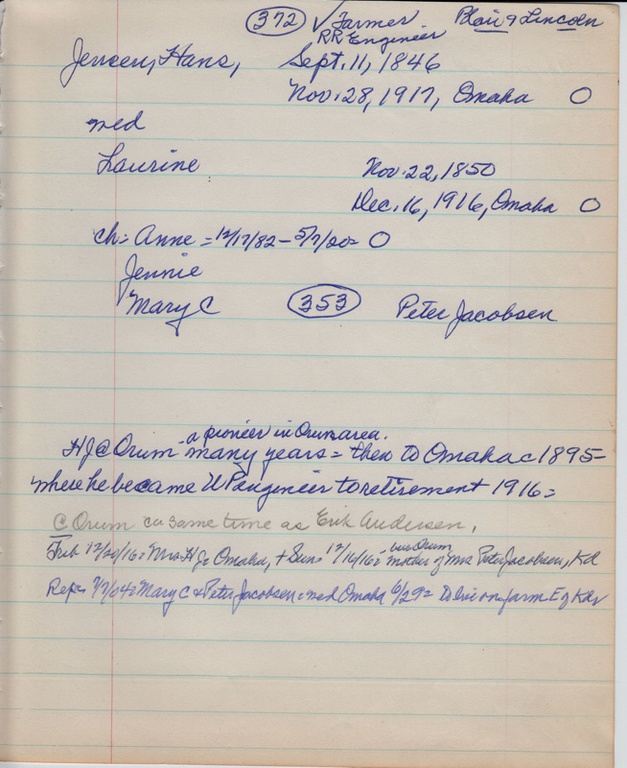 372 ✓ Farmer Blair & Lincoln
RR Engineer
Jensen, Hans, Sept. 11, 1846
Nov. 28, 1917, Omaha O
med
Laurine Nov. 22, 1850
Dec. 16, 1916, Omaha O
ch = Anne = 12/17/82 - 5/7/20 = O
Jennie
Mary C 353 Peter Jacobsen
a pioneer in Orum area.
HJ @ Orum many years = then to Omaha c 1895 -
where he became UP engineer to retirement 1916 =
@ Orum ca same time as Erik Andersen,
Trib 12/20/16 = Mrs HJ @ Omaha, + Sun = 12/16/16 = mother of Mrs Peter Jacobsen, Kd
Rep = 7/7/04 = Mary C & Peter Jacobsen = med Omaha 6/29 = to live on farm E of Kdr